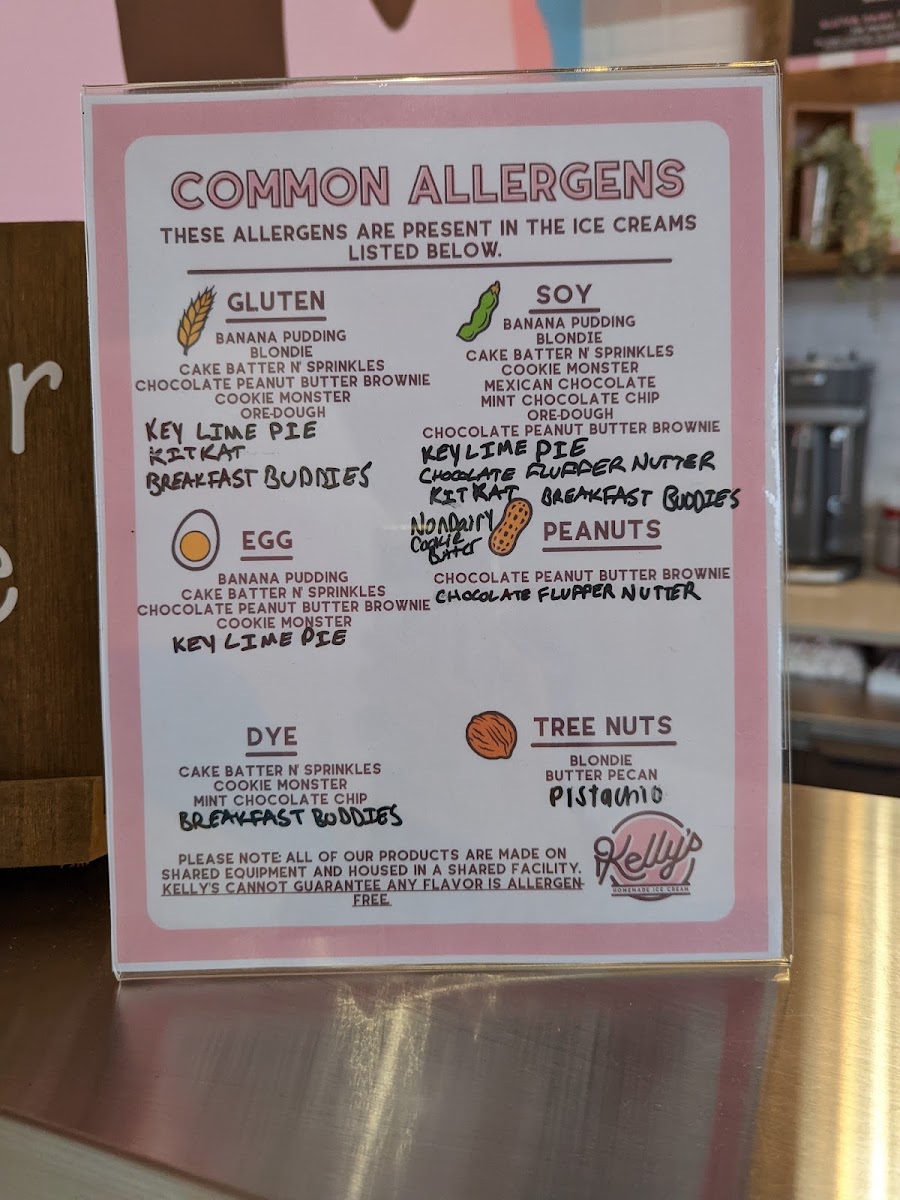 COMMON ALLERGENS
THESE ALLERGENS ARE PRESENT IN THE ICE CREAMS
LISTED BELOW.
GLUTEN
BANANA PUDDING
BLONDIE
CAKE BATTER N' SPRINKLES
CHOCOLATE PEANUT BUTTER BROWNIE
COOKIE MONSTER
ORE-DOUGH
KEY LIME PIE
KITKAT
BREAKFAST BUDDIES
SOY
BANANA PUDDING
BLONDIE
CAKE BATTER N' SPRINKLES
COOKIE MONSTER
MEXICAN CHOCOLATE
MINT CHOCOLATE CHIP
ORE-DOUGH
CHOCOLATE PEANUT BUTTER BROWNIE
KEY LIME PIE
CHOCOLATE FLUFFER NUTTER
KITKAT BREAKFAST BUDDIES
NonDairy
Cookie
Butter
EGG
BANANA PUDDING
CAKE BATTER N' SPRINKLES
CHOCOLATE PEANUT BUTTER BROWNIE
COOKIE MONSTER
KEY LIME PIE
PEANUTS
CHOCOLATE PEANUT BUTTER BROWNIE
CHOCOLATE FLUFFER NUTTER
DYE
CAKE BATTER N' SPRINKLES
COOKIE MONSTER
MINT CHOCOLATE CHIP
BREAKFAST BUDDIES
TREE NUTS
BLONDIE
BUTTER PECAN
Pistachio
PLEASE NOTE: ALL OF OUR PRODUCTS ARE MADE ON
SHARED EQUIPMENT AND HOUSED IN A SHARED FACILITY.
KELLY'S CANNOT GUARANTEE ANY FLAVOR IS ALLERGEN-
FREE.
Kelly's
HOMEMADE ICE CREAM
r
e